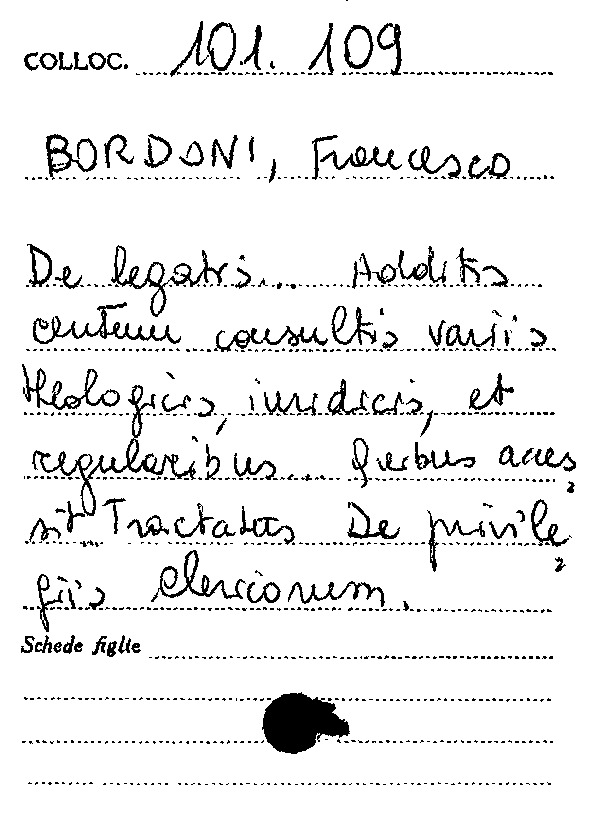 COLLOC. 101. 109
BORDONI, Francesco
De legatis... Additis
centum consultis variis
theologicis, iuridicis, et
regularibus... Quibus acces
sit Tractatus De privile
giis clericorum.
Schede figlie